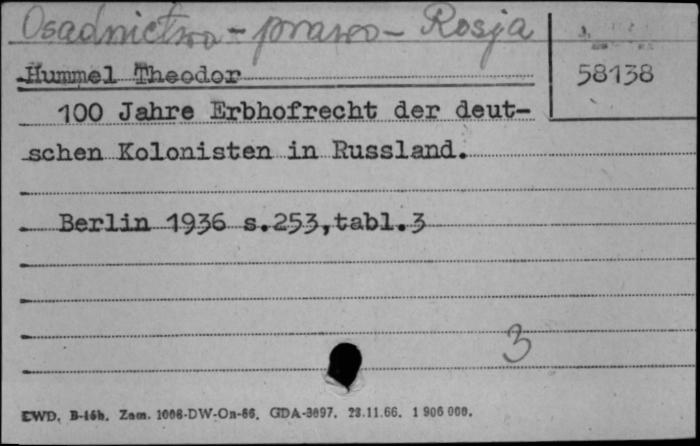 Osadnictwo - prawo - Rosja
58138
Hummel Theodor
100 Jahre Erbhofrecht der deut-
schen Kolonisten in Russland.
Berlin 1936 s.253,tabl.3
3
EWD. B-16h. Zam. 1008-DW-On-66. GDA-3097. 23.11.66. 1 906 000.